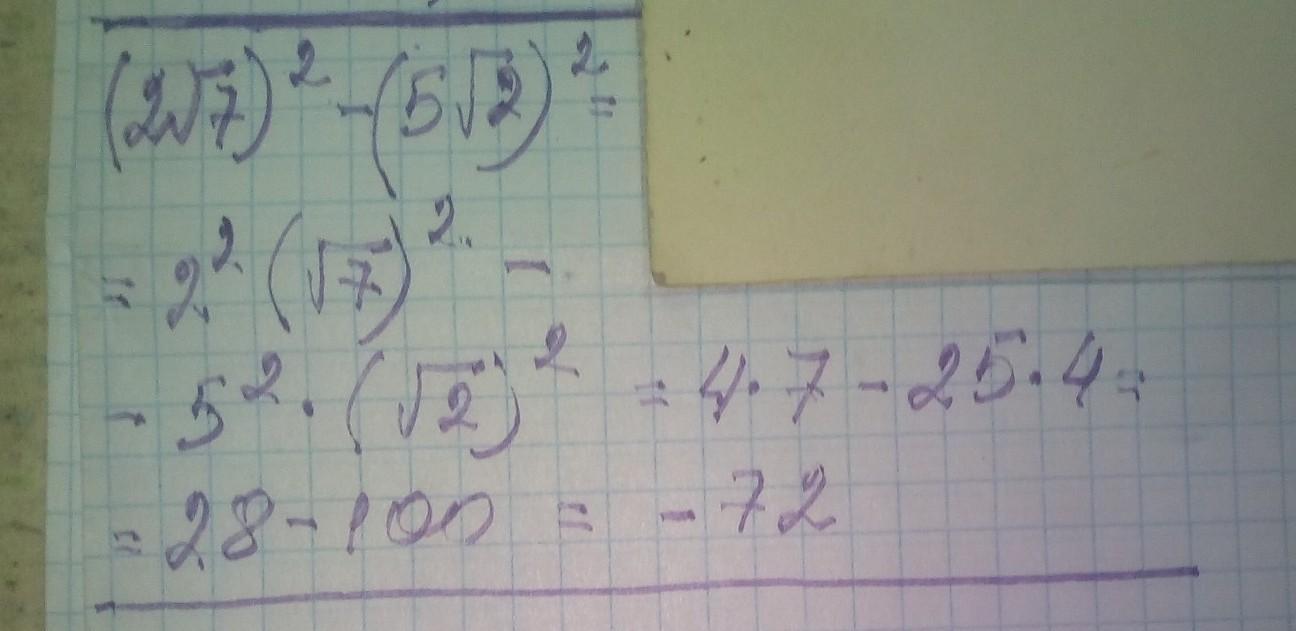 (2√7)² - (5√2)² =
= 2² (√7)² -
- 5² · (√2)² = 4·7 - 25·4 =
= 28 - 100 = - 72